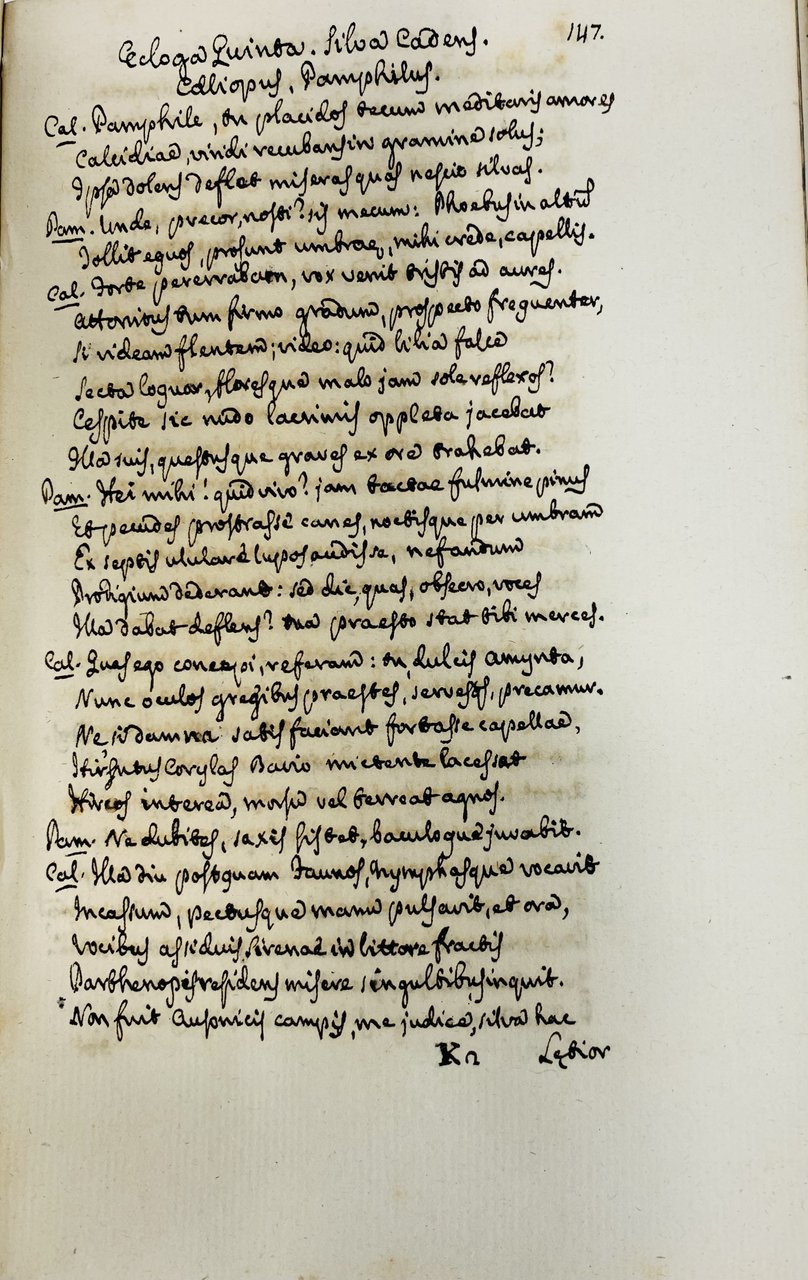 147.
Ecloga Quinta. Silva Cadens.
Calliopus, Pamphilus.
Cal. Pamphile, tu placidos tecum meditaris amores
Calcidiae, viridi recubans in gramine solus;
Ipsa dolens deflet miseras quas nescio silvas.
Pam. Unde, precor, nosti? sis mecum: Phoebus in altum
Tollit equos, prosunt umbrae, mihi crede, capellis.
Cal. Forte pererrabam, vox venit tristis ad aures.
Attonitus tum firmo gradum, prospecto frequenter,
Si videam flentem; video: quid lilia falce
Secta loquor, floresque malo jam sole reflexos?
Cespite sic nudo lacrimis oppleta jacebat
Illa suis, questusque graves ex ore trahebat.
Pam. Hei mihi! quid vivo? jam tactae fulmine pinus
Et pecudes prostrasse canes, noctisque per umbram
Ex septis ululare lupos audisse, nefandum
Prodigium dederant: sed dic, quas, obsecro, voces
Illa dabat deflens? tua praesto stat tibi merces.
Cal. Quas ego concepi, referam: tu, dulcis Amynta,
Nunc oculos gregibus praestes, serves, precamur.
Ne si damna satis faciant fortasse capellae,
Hirsutus Corylas Bavio mictente lacessat
Hircos interea, morsu vel terreat agnos.
Pam. Ne dubites, saxis sistet, baculoque juvabit.
Cal. Illa diu postquam Faunos, Nymphasque vocavit
Incassum, pectusque manu pulsavit, et ora,
Vocibus assiduis Sirenae in littore fractis
Parthenopes residens misere singultibus inquit.
* Non fuit Ausonicis campis, me judice, silva hac
K2 Lętior